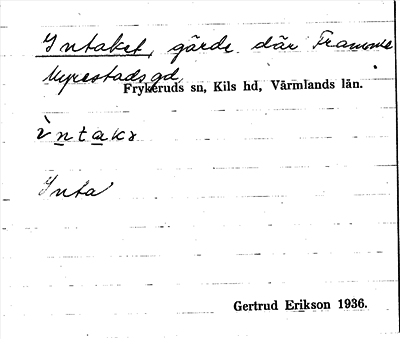 Intaket, gärde där Framme
Myrestads gd,
Frykeruds sn, Kils hd, Värmlands län.
ìntakə
Inta
Gertrud Erikson 1936.